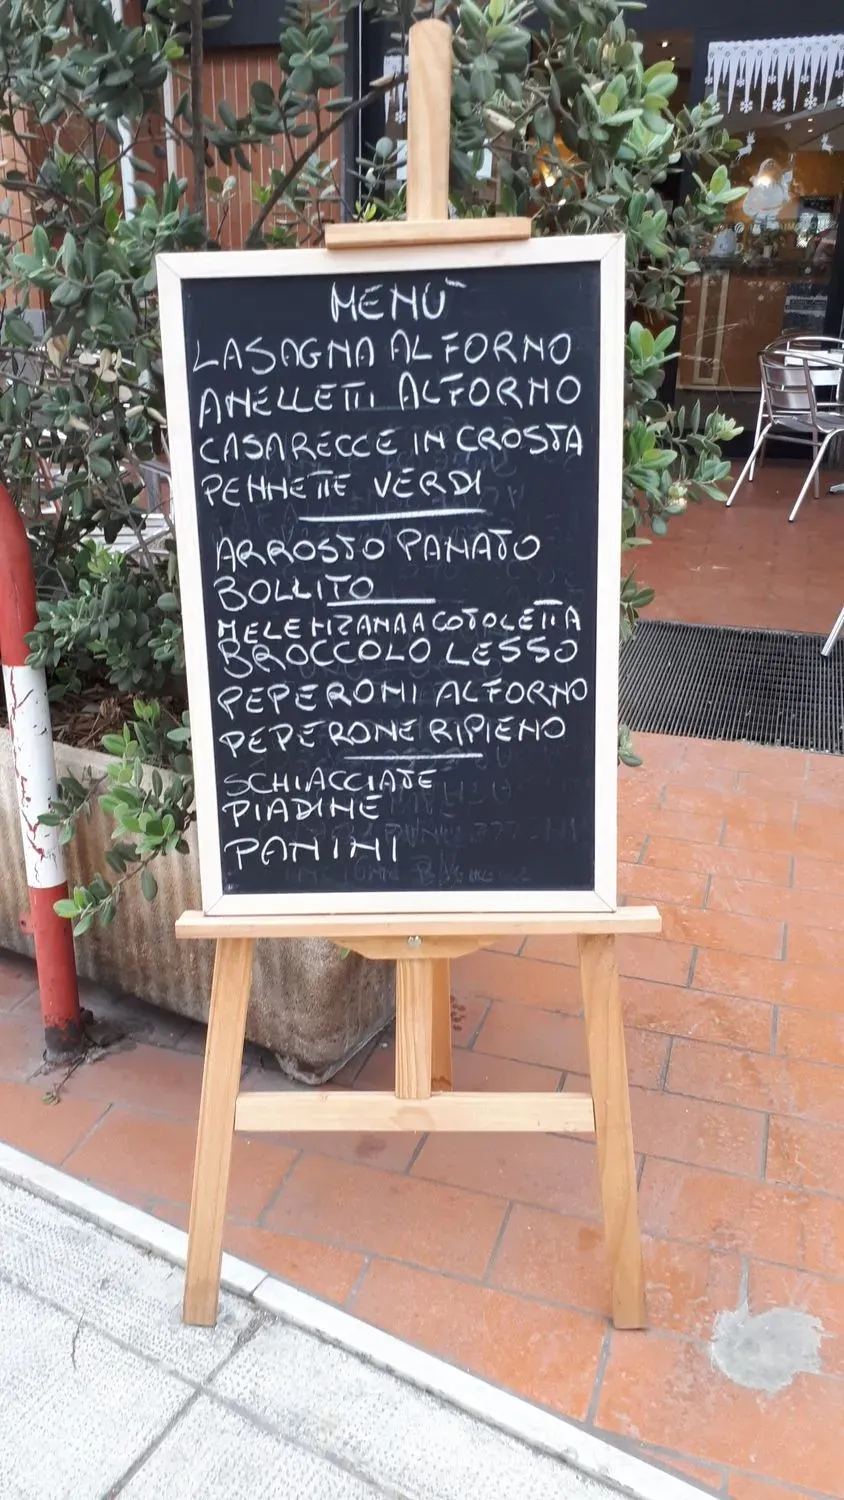 MENÙ
LASAGNA AL FORNO
ANELLETTI AL FORNO
CASARECCE IN CROSTA
PENNETTE VERDI
ARROSTO PANATO
BOLLITO
MELENZANA A COTOLETTA
BROCCOLO LESSO
PEPERONI AL FORNO
PEPERONE RIPIENO
SCHIACCIATE
PIADINE
PANINI